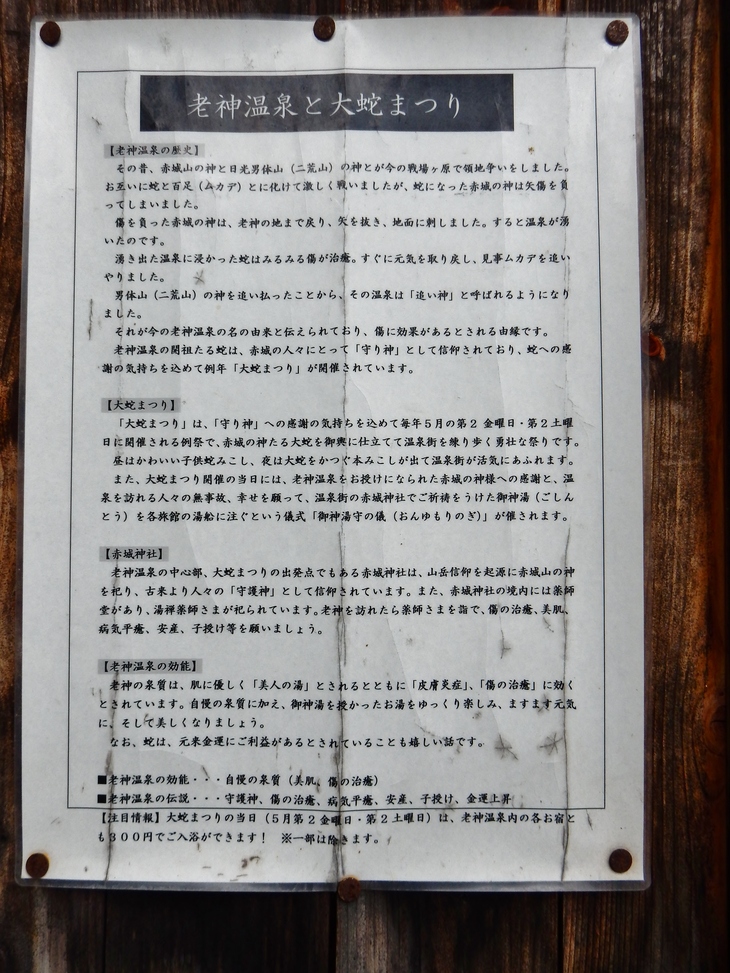 老神温泉と大蛇まつり
【老神温泉の歴史】
その昔、赤城山の神と日光男体山（二荒山）の神とが今の戦場ヶ原で領地争いをしました。
お互いに蛇と百足（ムカデ）とに化けて激しく戦いましたが、蛇になった赤城の神は矢傷を負
ってしまいました。
傷を負った赤城の神は、老神の地まで戻り、矢を抜き、地面に刺しました。すると温泉が湧
いたのです。
湧き出た温泉に浸かった蛇はみるみる傷が治癒。すぐに元気を取り戻し、見事ムカデを追い
やりました。
男体山（二荒山）の神を追い払ったことから、その温泉は「追い神」と呼ばれるようになり
ました。
それが今の老神温泉の名の由来と伝えられており、傷に効果があるとされる由縁です。
老神温泉の開祖たる蛇は、赤城の人々にとって「守り神」として信仰されており、蛇への感
謝の気持ちを込めて例年「大蛇まつり」が開催されています。
【大蛇まつり】
「大蛇まつり」は、「守り神」への感謝の気持ちを込めて毎年５月の第２金曜日・第２土曜
日に開催される例祭で、赤城の神たる大蛇を御輿に仕立てて温泉街を練り歩く勇壮な祭りです。
昼はかわいい子供蛇みこし、夜は大蛇をかつぐ本みこしが出て温泉街が活気にあふれます。
また、大蛇まつり開催の当日には、老神温泉をお授けになられた赤城の神様への感謝と、温
泉を訪れる人々の無事故、幸せを願って、温泉街の赤城神社でご祈祷をうけた御神湯（ごしん
とう）を各旅館の湯船に注ぐという儀式「御神湯守の儀（おんゆもりのぎ）」が催されます。
【赤城神社】
老神温泉の中心部、大蛇まつりの出発点でもある赤城神社は、山岳信仰を起源に赤城山の神
を祀り、古来より人々の「守護神」として信仰されています。また、赤城神社の境内には薬師
堂があり、湯禅薬師さまが祀られています。老神を訪れたら薬師さまを詣で、傷の治癒、美肌、
病気平癒、安産、子授け等を願いましょう。
【老神温泉の効能】
老神の泉質は、肌に優しく「美人の湯」とされるとともに「皮膚炎症」、「傷の治癒」に効く
とされています。自慢の泉質に加え、御神湯を授かったお湯をゆっくり楽しみ、ますます元気
に、そして美しくなりましょう。
なお、蛇は、元来金運にご利益があるとされていることも嬉しい話です。
■老神温泉の効能・・・自慢の泉質（美肌、傷の治癒）
■老神温泉の伝説・・・守護神、傷の治癒、病気平癒、安産、子授け、金運上昇
【注目情報】大蛇まつりの当日（５月第２金曜日・第２土曜日）は、老神温泉内の各お宿と
も３００円でご入浴ができます！　※一部は除きます。